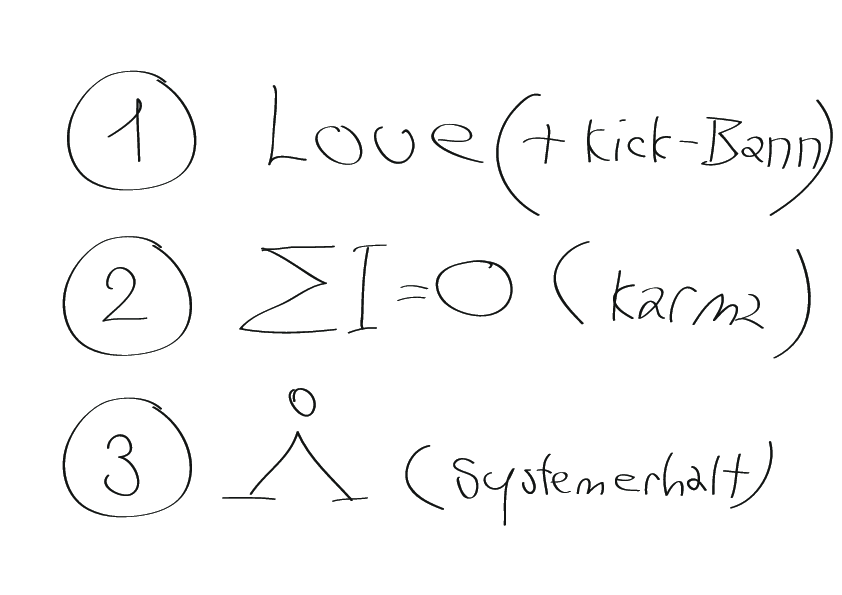 1 Love (+ Kick-Bann)
2 ΣI=0 (Karma)
3 (Systemerhalt)